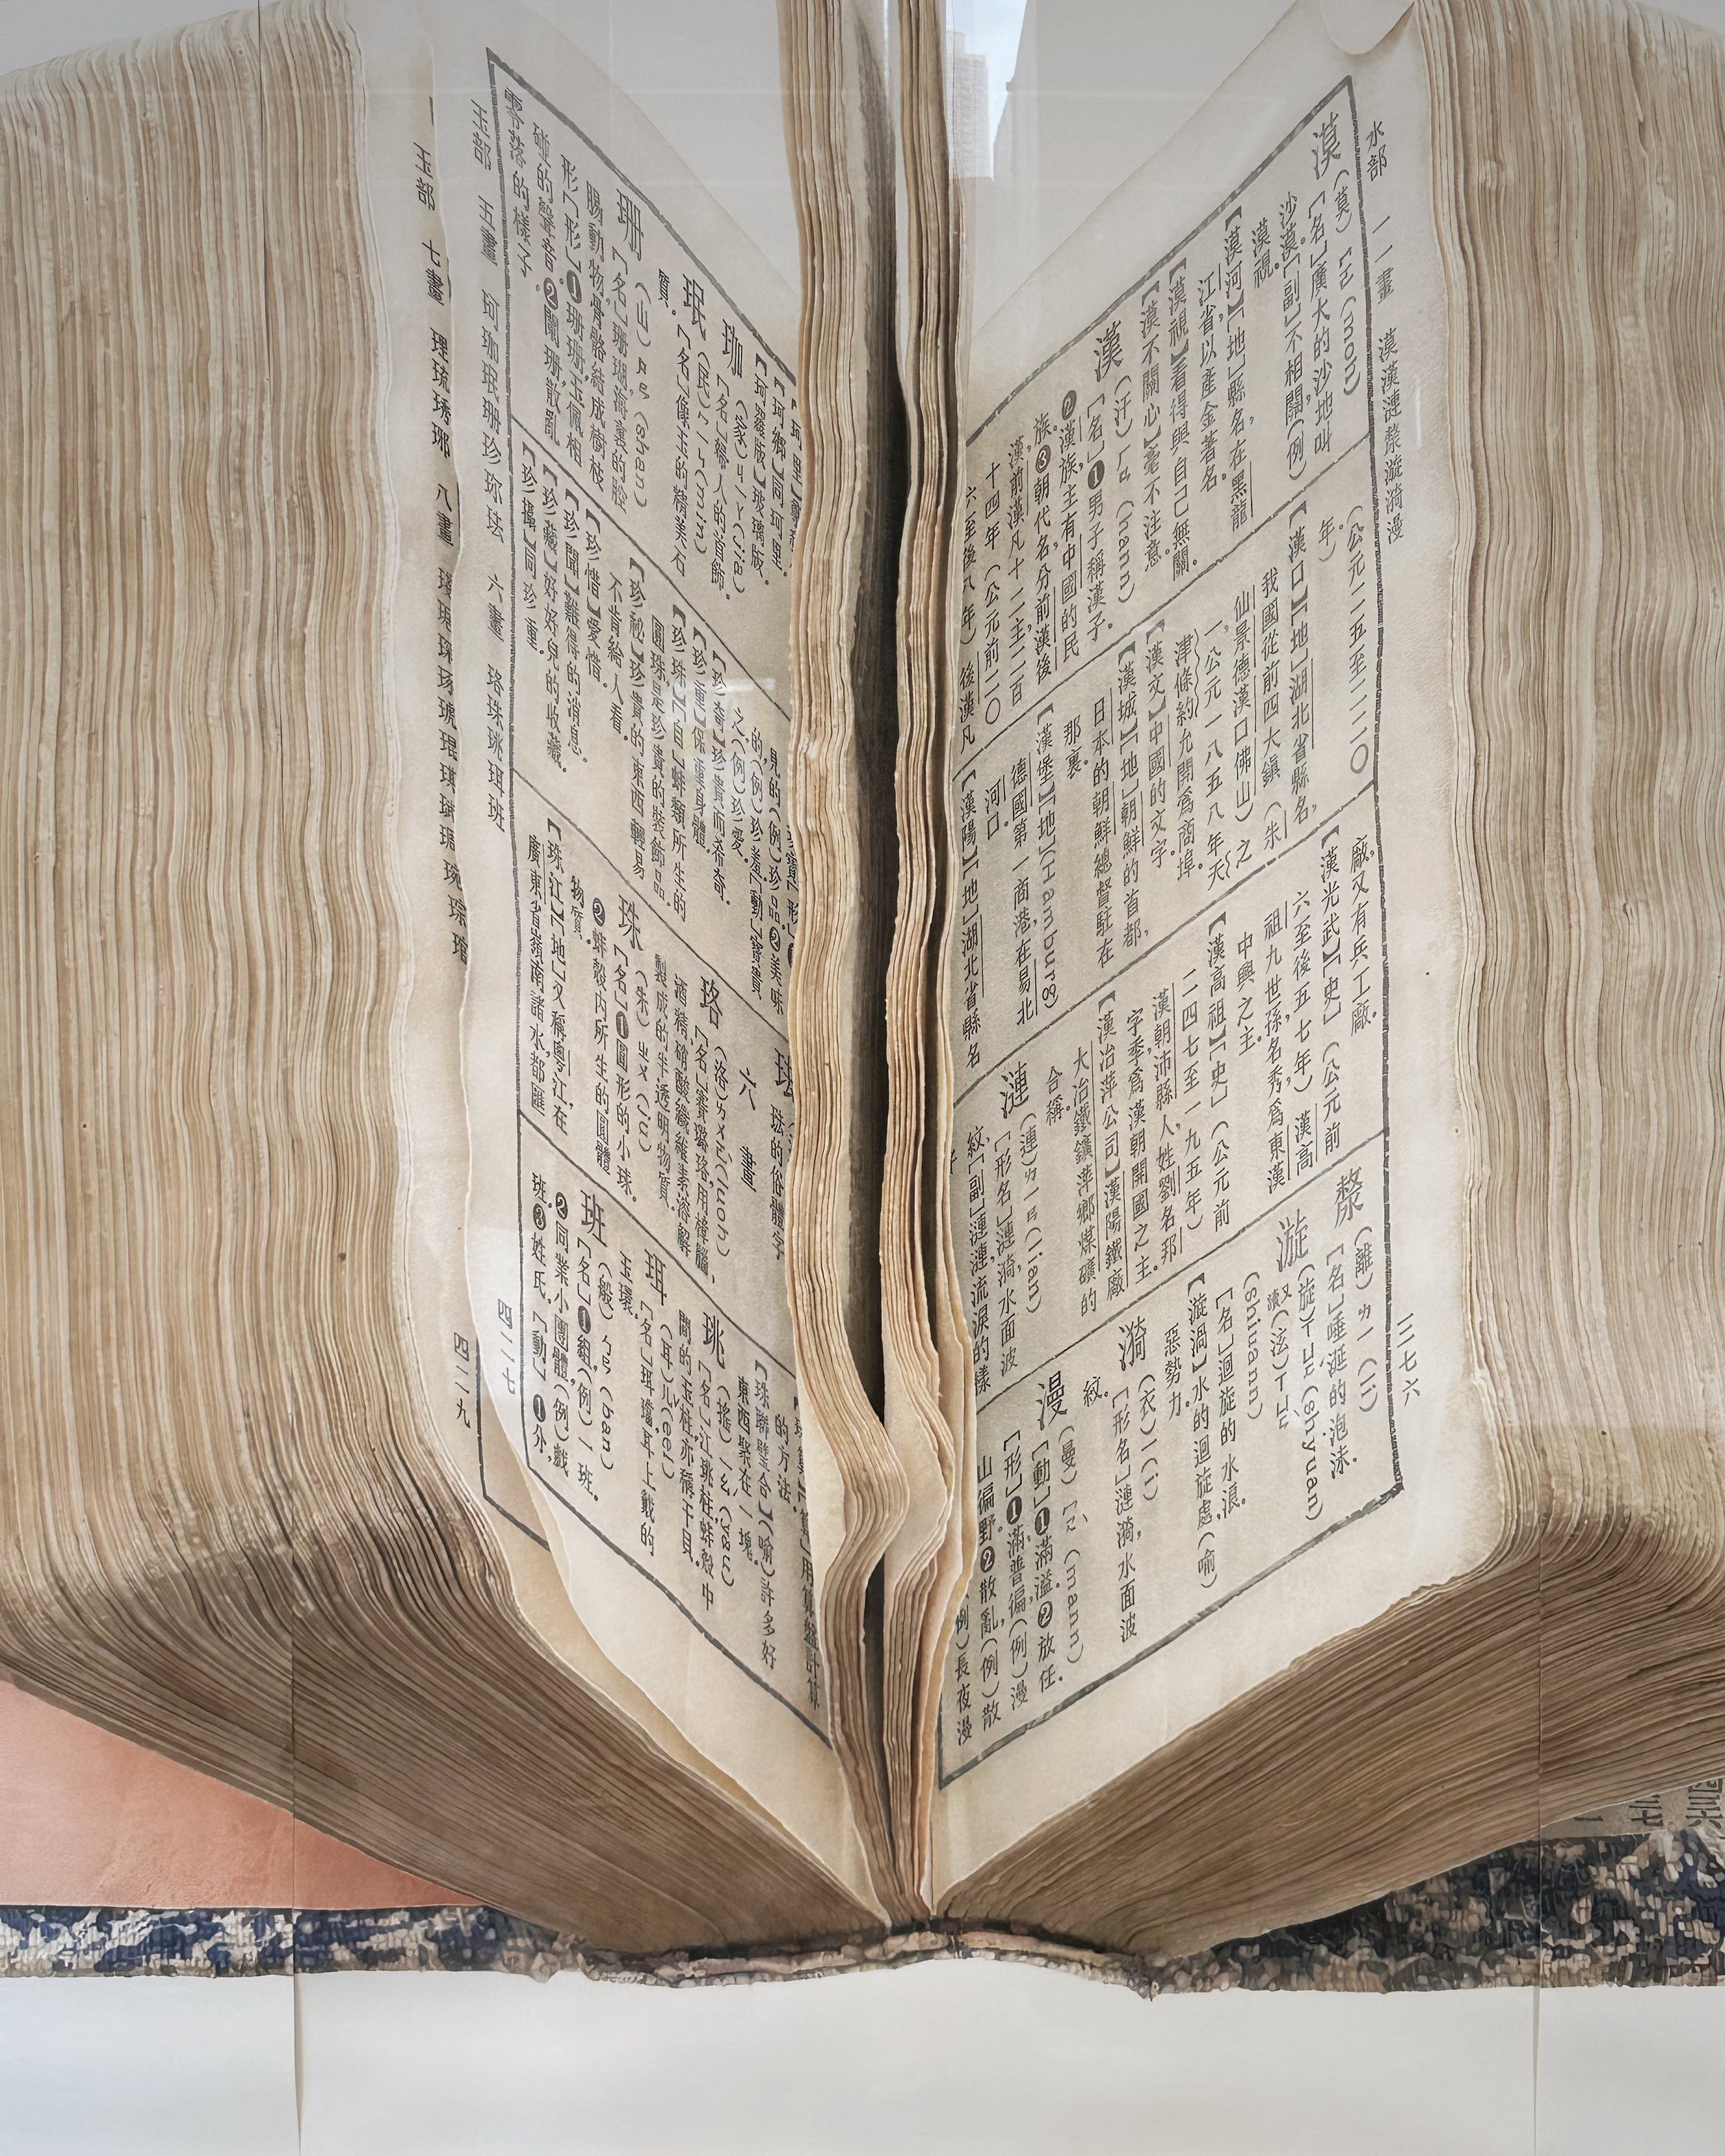 水部 一一畫 漠漢漣漦漩漪漫
三七六
漠(莫)ㄇㄛ(moh)
[名]廣大的沙地叫
沙漠.[副]不相關(例)
漠視.
【漠河】[地]縣名,在黑龍
江省,以產金著名.
【漠視】看得與自己無關.
【漠不關心】毫不注意.
漢(汗)ㄏㄢ(hann)
[名]❶男子稱漢子.
❷漢族,主有中國的民
族.❸朝代名,分前漢後
漢前漢凡十二主二百
十四年(公元前二〇
六至後八年)後漢凡
(公元二五至二二〇
年).
【漢口】[地]湖北省縣名,
我國從前四大鎮(朱
仙景德漢口佛山)之
一,公元一八五八年天
津條約允開爲商埠.
【漢文】中國的文字.
【漢城】[地]朝鮮的首都,
日本的朝鮮總督駐在
那裏.
【漢堡】[地](Hamburg)
德國第一商港,在易北
河口.
【漢陽】[地]湖北省縣名
廠,又有兵工廠.
【漢光武】[史](公元前
六至後五七年)漢高
祖九世孫,名秀,爲東漢
中興之主.
【漢高祖】[史](公元前
二四七至一九五年)
漢朝沛縣人,姓劉名邦
字季,爲漢朝開國之主.
【漢冶萍公司】漢陽鐵廠
大冶鐵鑛萍鄉煤礦的
合稱.
漣(連)ㄌㄧㄢ(lian)
[形名]漣漪,水面波
紋.[副]漣漣,流淚的樣
漦(離)ㄌㄧ(li)
[名]唾涎的泡沫.
漩(旋)ㄒㄩㄢ(shyuan)
又讀(泫)ㄒㄩㄢ
(shiuann)
[名]迴旋的水浪.
【漩渦】水的迴旋處,(喻)
惡勢力.
漪(衣)ㄧ(i)
[形名]漣漪,水面波
紋.
漫(曼)ㄇㄢ(mann)
[動]❶滿溢.❷放任.
[形]❶滿,普徧(例)漫
山徧野.❷散亂(例)散
例)長夜漫
玉部 五畫 珂珈珉珊珍珎珐 六畫 珞珠珧珥班
四二七
【珂鄉】同珂里.
【珂羅版】玻璃版.
珈(家)ㄐㄧㄚ(jia)
[名]婦人的首飾.
珉(民)ㄇㄧㄣ(min)
[名]像玉的精美石
質.
珊(山)ㄕㄢ(shan)
[名]珊瑚,海裏的腔
腸動物,骨骼結成樹枝
形.[形]❶珊珊,玉佩相
碰的聲音.❷闌珊,散亂
零落的樣子.
見的(例)珍品.❷美味
的(例)珍羞.[動]寶貴
之(例)珍愛.
【珍奇】珍貴而希奇.
【珍重】保重身體.
【珍珠】自蚌類所生的
圓珠,是珍貴的裝飾品.
【珍祕】珍貴的東西輕易
不肯給人看.
【珍惜】愛惜.
【珍聞】難得的消息.
【珍藏】好好兒的收藏.
【珍攝】同珍重.
珐的俗體字
六畫
珞(洛)ㄌㄨㄛ(luoh)
[名]賽璐珞,用樟腦,
酒精,硝酸纖維素溶解
製成的半透明物質.
珠(朱)ㄓㄨ(ju)
[名]❶圓形的小球.
❷蚌殼內所生的圓體
物質.
【珠江】[地]又稱粵江,在
廣東省嶺南諸水都匯
【珠算】用算盤計算
的方法.
【珠聯璧合】(喻)許多好
東西聚在一塊.
珧(搖)ㄧㄠ(yau)
[名]江珧柱,蚌殼中
間的玉柱,亦稱干貝.
珥(耳)ㄦ(eel)
[名]珥璫,耳上戴的
玉環.
班(般)ㄅㄢ(ban)
[名]❶組(例)一班.
❷同業小團體(例)戲
班.❸姓氏.[動]❶分,
玉部 七畫 理琉琇琊 八畫
四二九